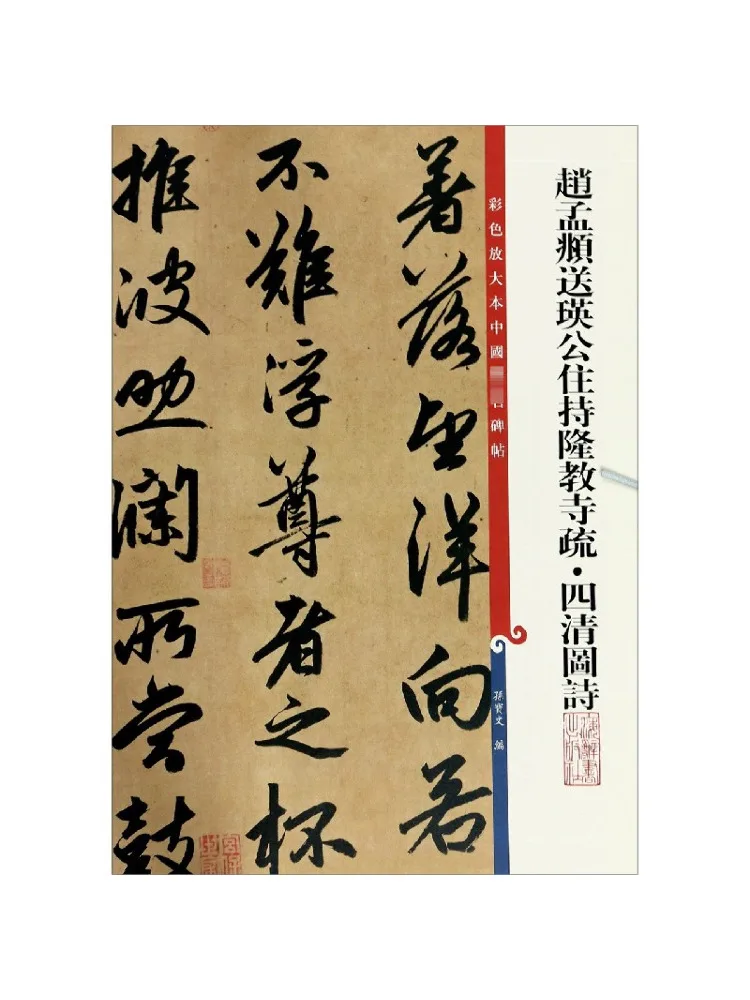 趙孟頫送瑛公住持隆教寺疏·四清圖詩
上海辭書出版社
彩色放大本中國名碑帖
孫寶文 編
著落望洋向若
不難浮尊者之杯
推波助瀾所當鼓